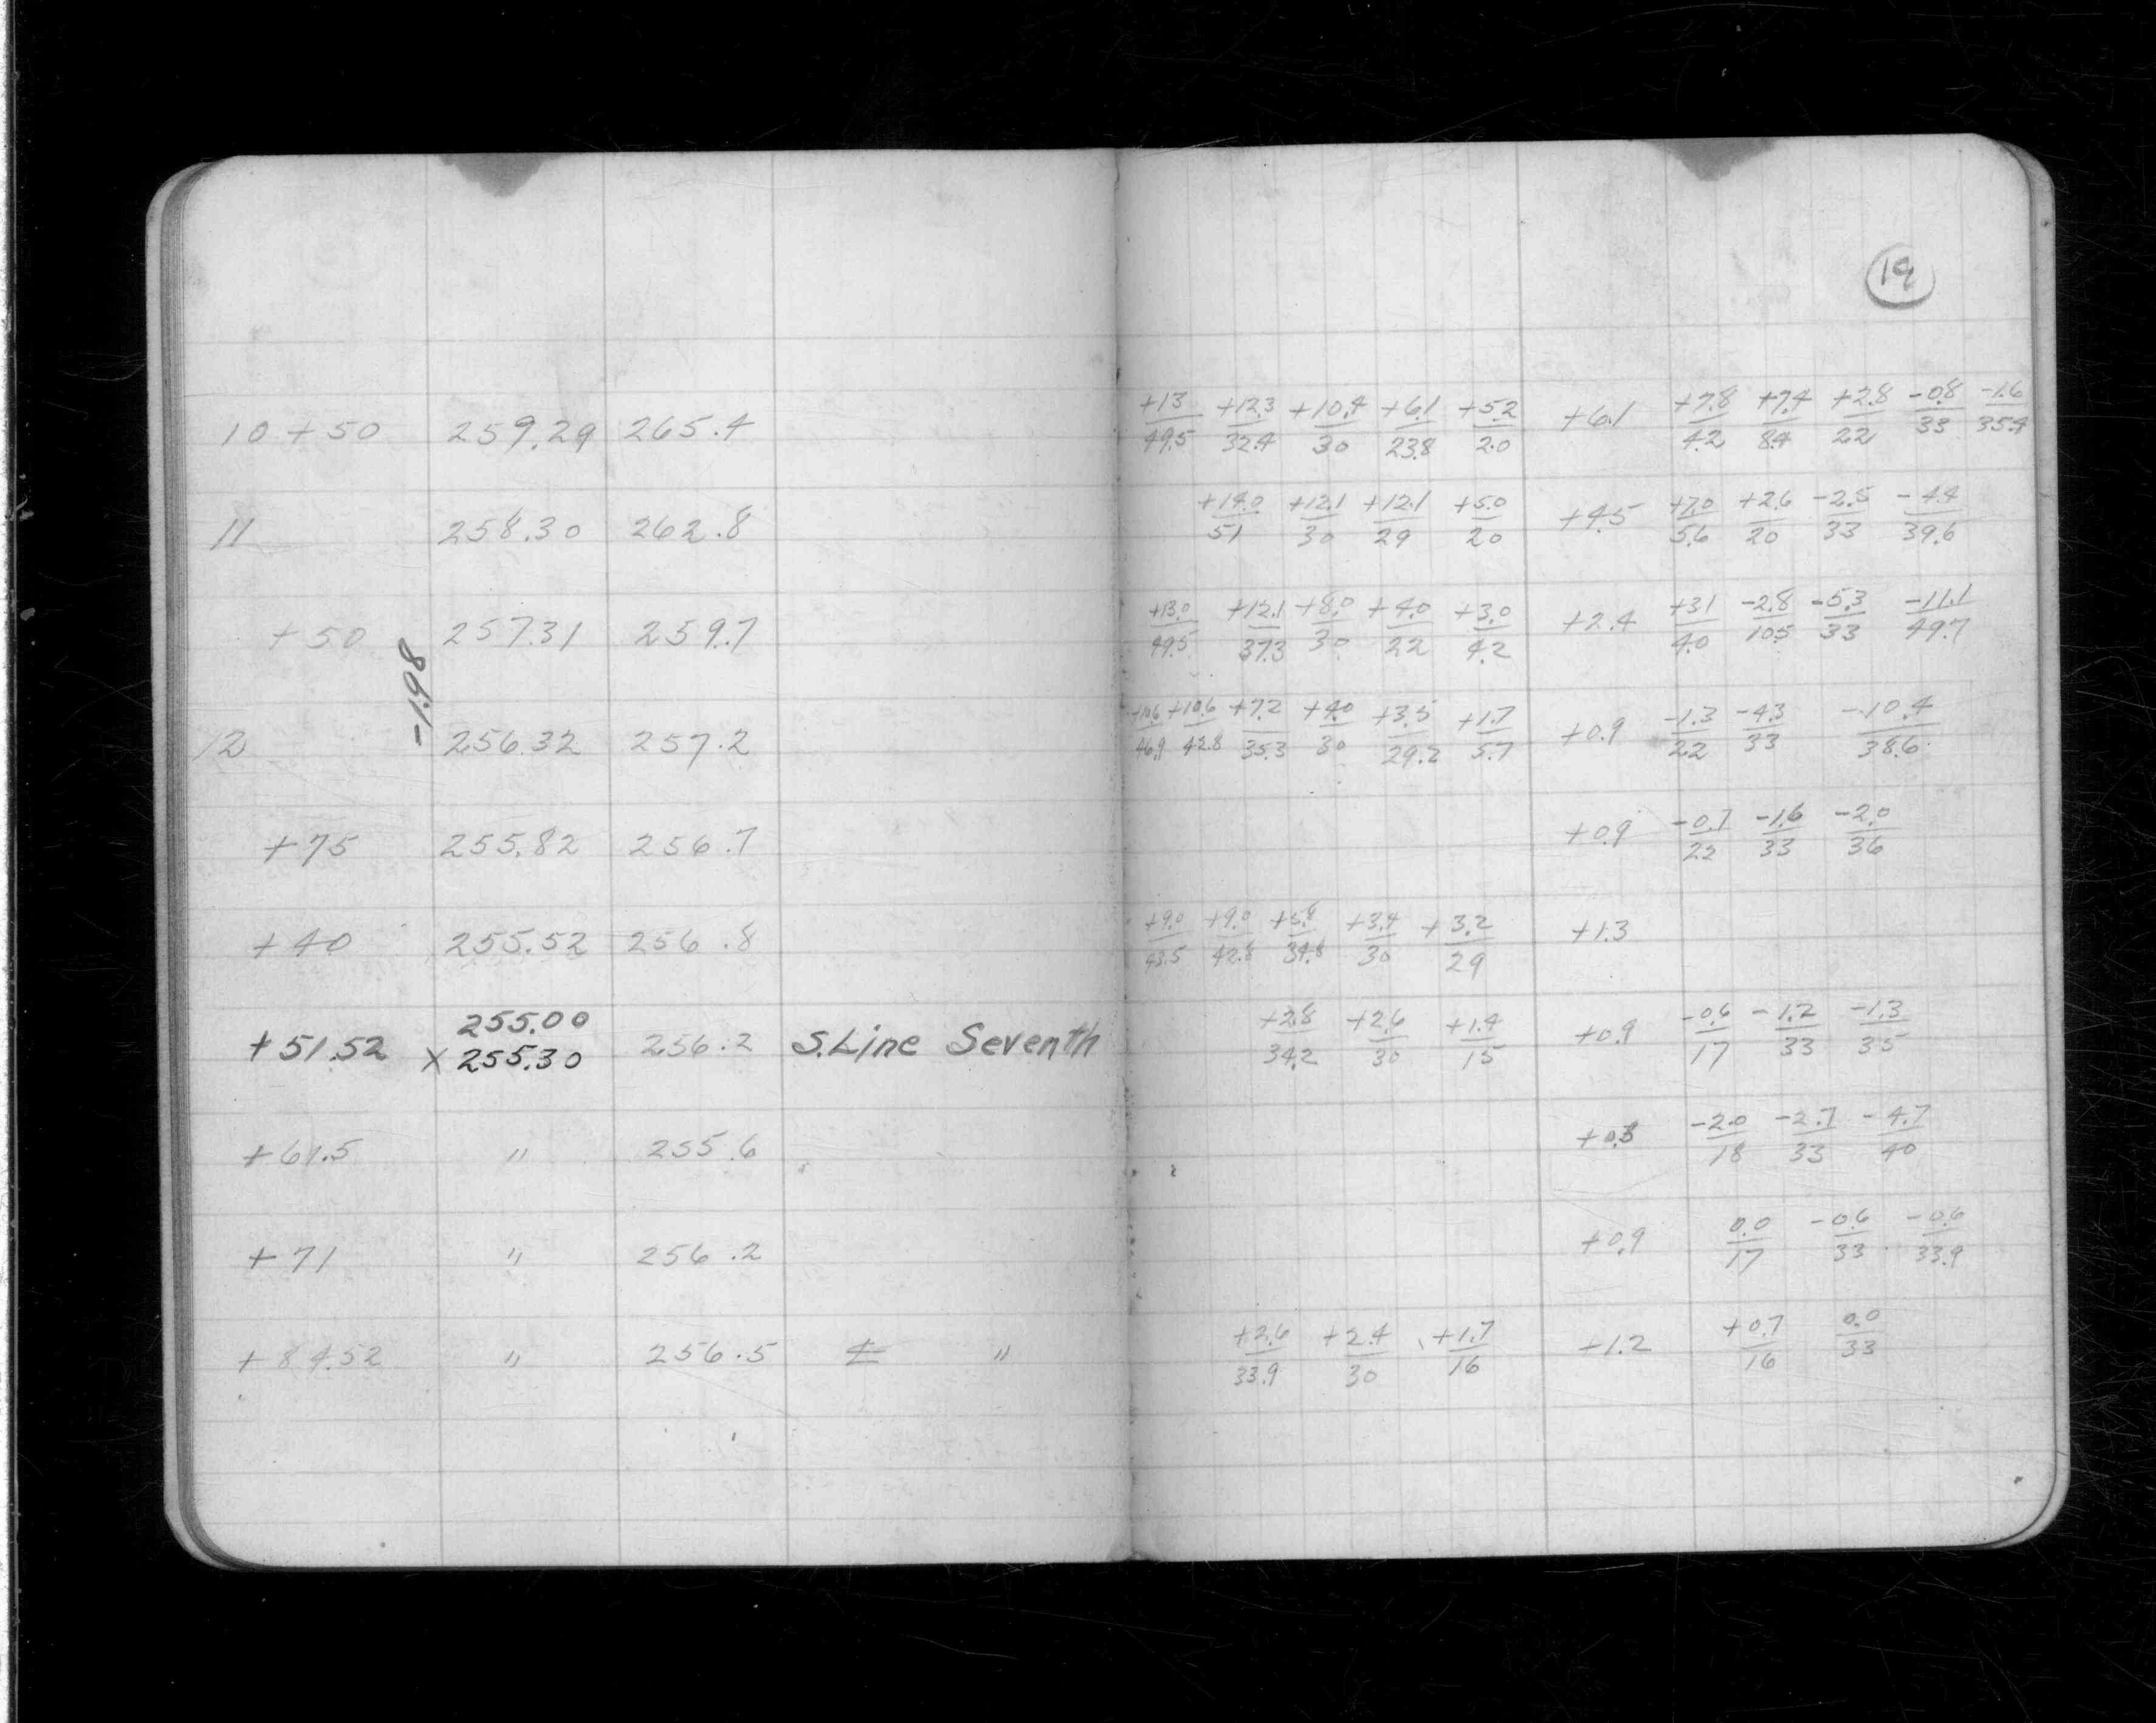 19
10 + 50 259.29 265.4 +13/49.5 +12.3/32.4 +10.4/30 +6.1/23.8 +5.2/20 +6.1 +7.8/4.2 +7.4/8.4 +2.8/22 -0.8/33 -1.6/35.4
11 258.30 262.8 +14.0/51 +12.1/30 +12.1/29 +5.0/20 +4.5 +7.0/5.6 +2.6/20 -2.5/33 -4.4/39.6
+50 257.31 259.7 +13.0/49.5 +12.1/37.3 +8.0/30 +4.0/22 +3.0/4.2 +2.4 +3.1/4.0 -2.8/10.5 -5.3/33 -11.1/49.7
-1.98
12 256.32 257.2 +10.6/46.9 +10.6/42.8 +7.2/35.3 +4.0/30 +3.5/29.2 +1.7/5.7 +0.9 -1.3/22 -4.3/33 -10.4/38.6
+75 255.82 256.7 +0.9 -0.7/22 -1.6/33 -2.0/36
+40 255.52 256.8 +9.0/43.5 +9.0/42.8 +5.8/34.8 +3.4/30 +3.2/29 +1.3
255.00
+51.52 X 255.30 256.2 S.Line Seventh +2.8/34.2 +2.6/30 +1.4/15 +0.9 -0.6/17 -1.2/33 -1.3/35
+61.5 " 255.6 +0.3 -2.0/18 -2.7/33 -4.7/40
+71 " 256.2 +0.9 0.0/17 -0.6/33 -0.6/33.9
+84.52 " 256.5 " +2.6/33.9 +2.4/30 +1.7/16 +1.2 +0.7/16 0.0/33